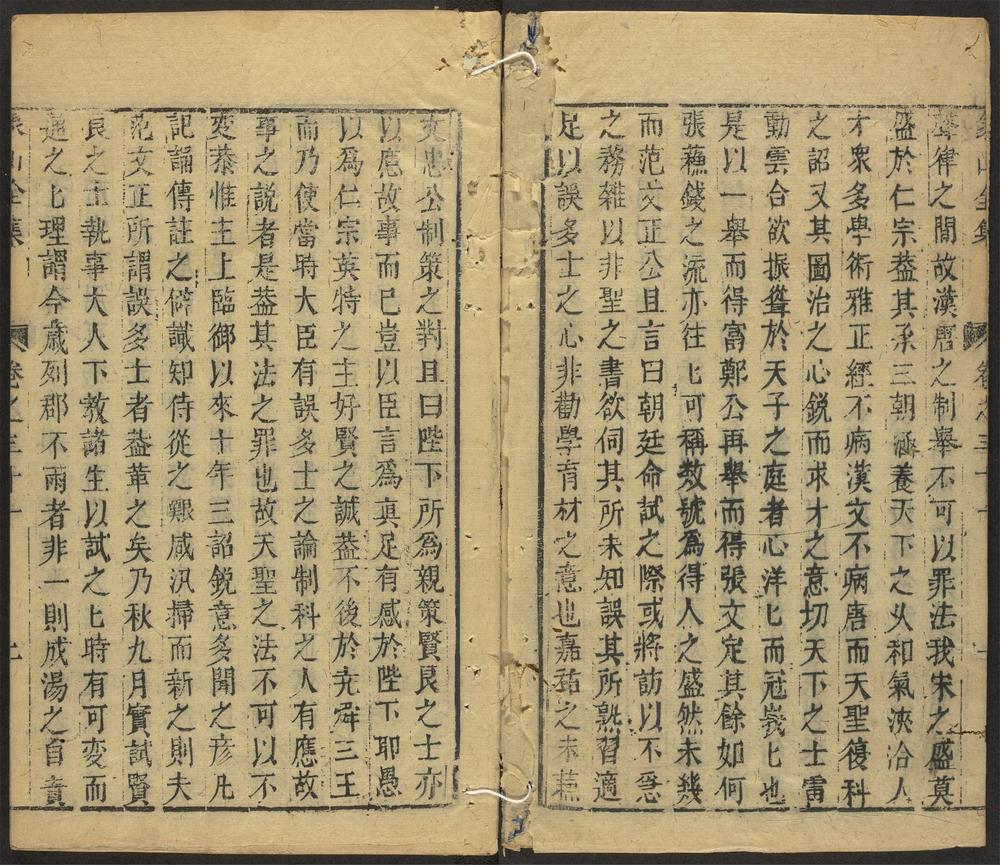 象山全集 卷之三十一
聲律之間故漢唐之制舉不可以罪法我宋之盛莫
盛於仁宗蓋其承三朝涵養天下之久和氣浹洽人
才衆多學術雅正經不病漢文不病唐而天聖復科
之詔又其圖治之心鋭而求才之意切天下之士雷
動雲合欲振聳於天子之庭者心洋匕而冠峩匕也
是以一舉而得富鄭公再舉而得張文定其餘如何
張蘓錢之流亦往匕可稱教號爲得人之盛然未幾
而范文正公且言曰朝廷命試之際或將訪以不急
之務雜以非聖之書欲伺其所未知誤其所熟習適
足以誤多士之心非勸學育材之意也嘉祐之末蘓
文忠公制策之對且曰陛下所爲親策賢良之士亦
以應故事而已豈以臣言爲真足有感於陛下耶愚
以爲仁宗英特之主好賢之誠蓋不後於堯舜三王
而乃使當時大臣有誤多士之論制科之人有應故
事之說者是蓋其法之罪也故天聖之法不可以不
変恭惟主上臨御以來十年三詔鋭意多聞之彦凡
記誦傳註之僻識知侍從之艱咸汎掃而新之則夫
范文正所謂誤多士者蓋革之矣乃秋九月實試賢
良之士執事大人下教諸生以試之匕時有可変而
通之匕理謂今歲列郡不雨者非一則成湯之自責
象山全集 卷之三十一 七